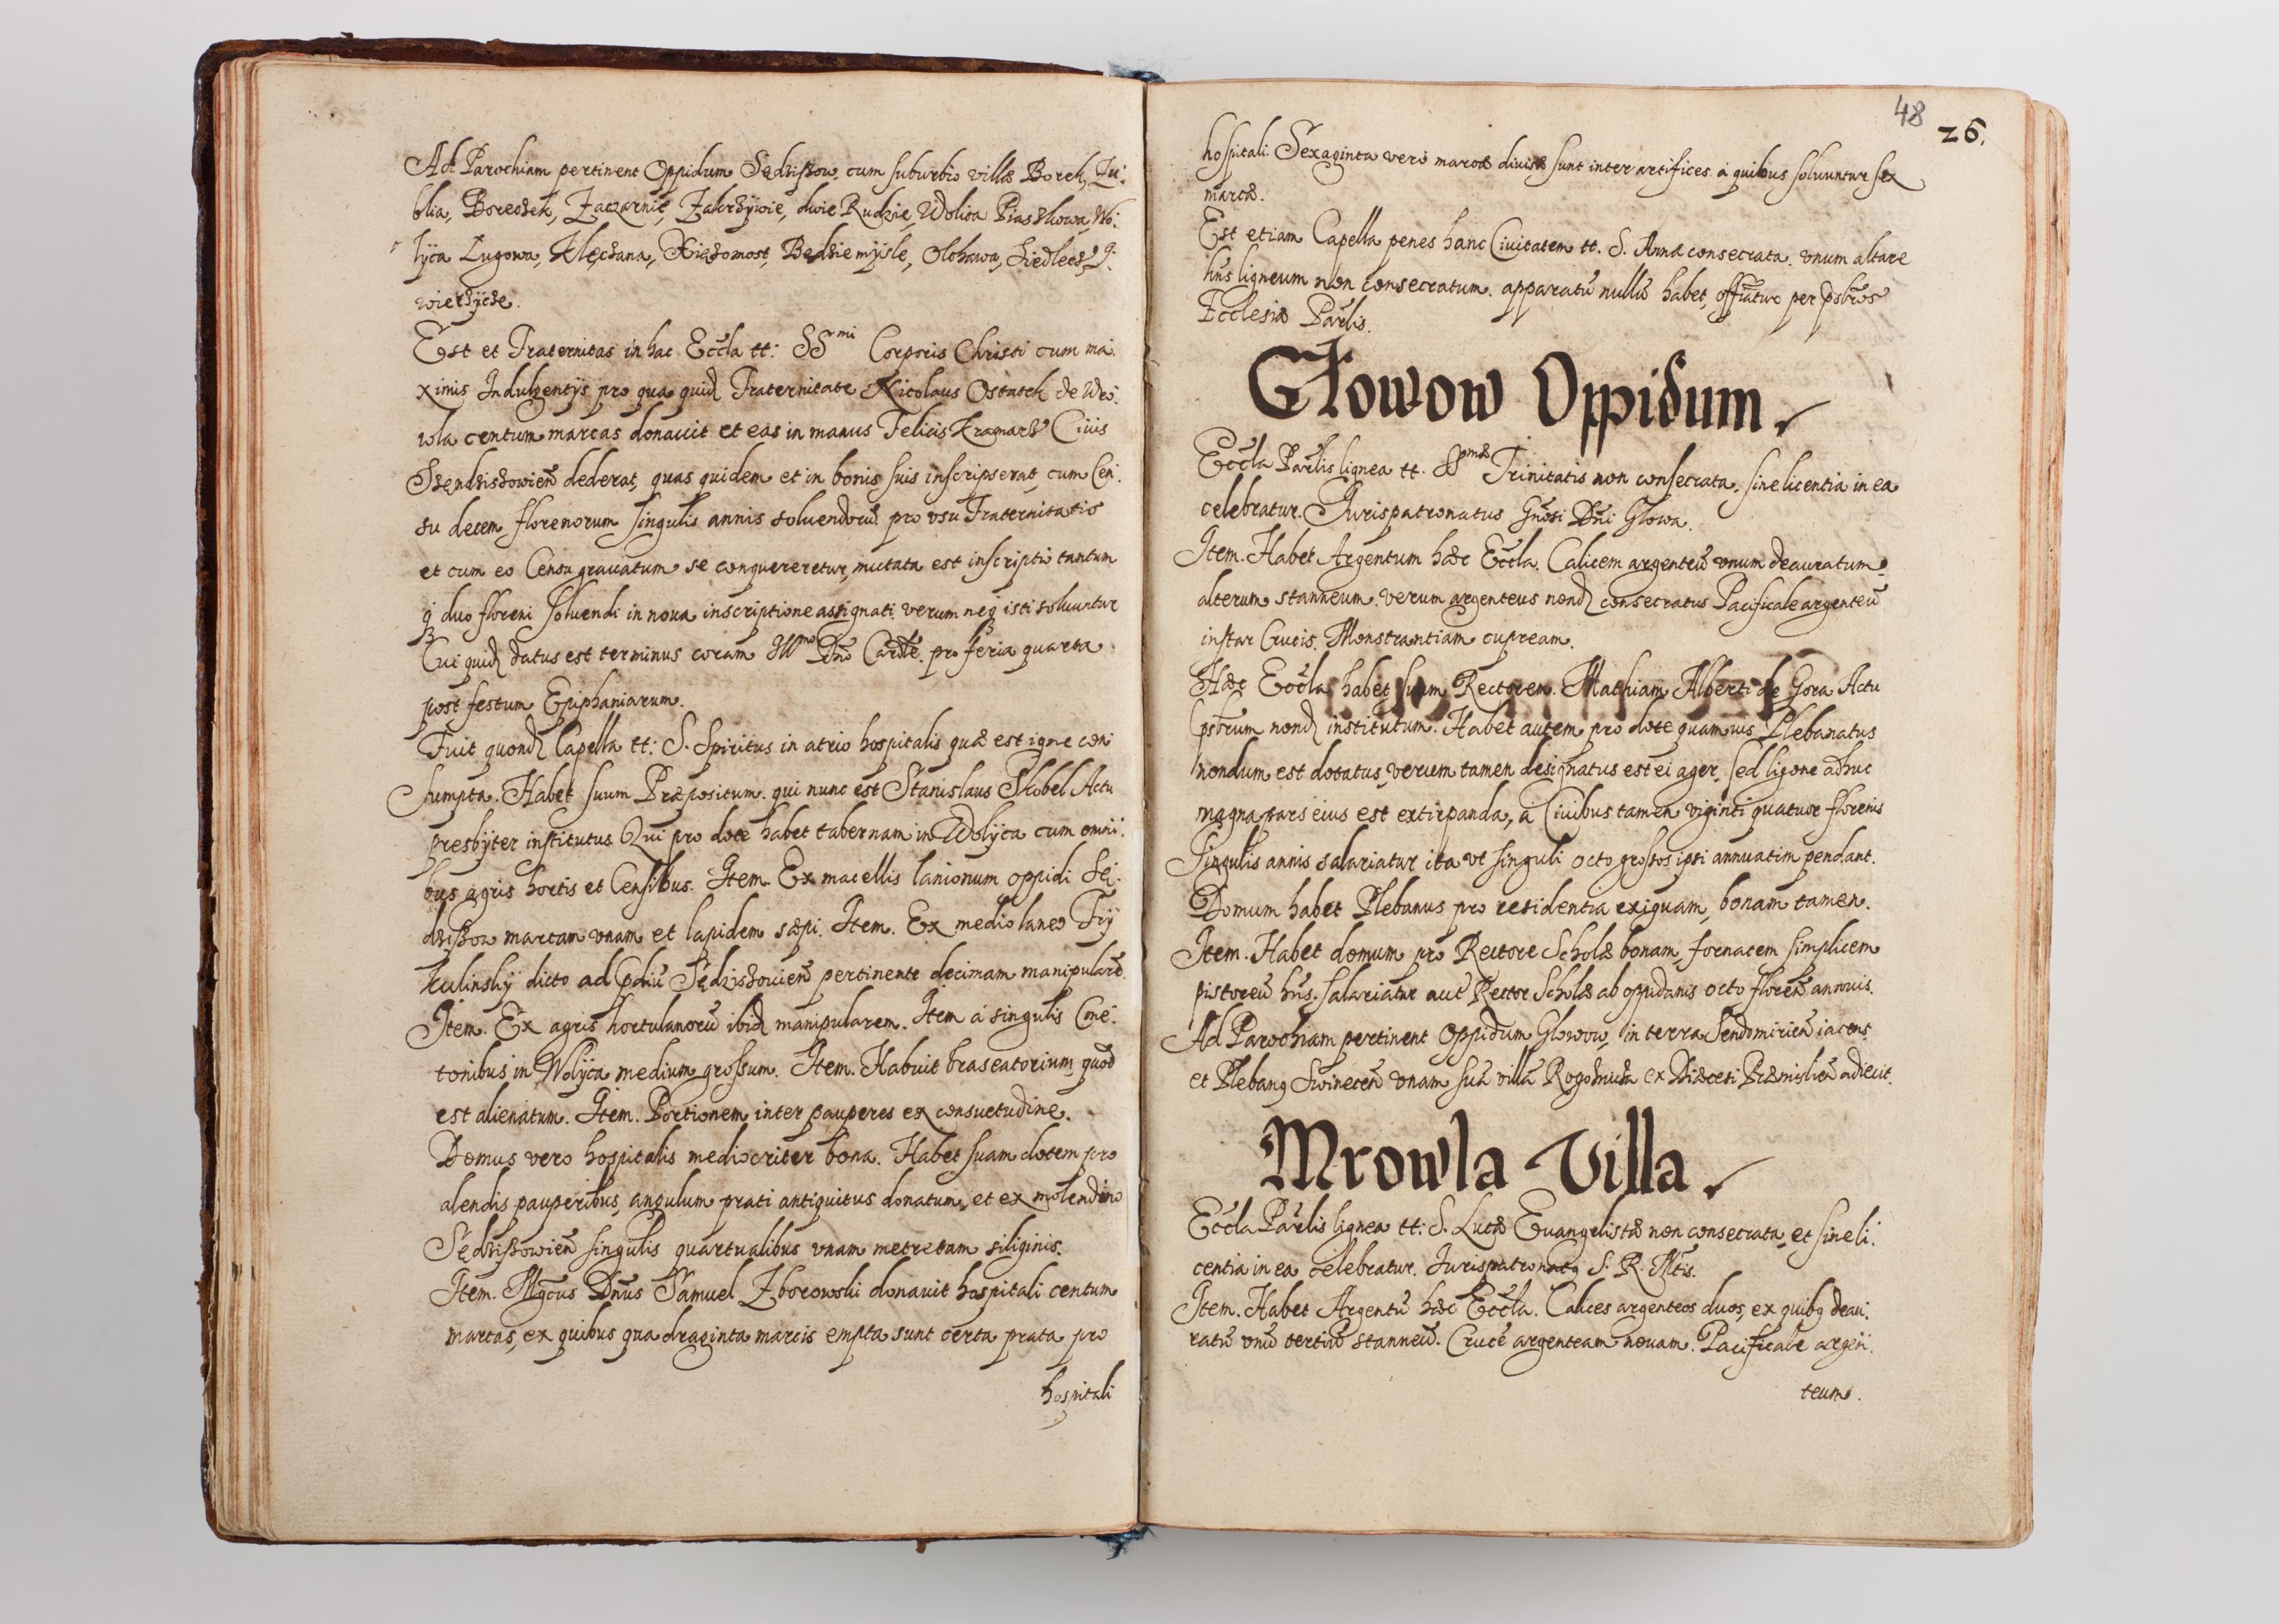 Ad Parochiam pertinent Oppidum Sędzißow, cum suburbio villæ Borek, Lu:
blia, Boreczek, Zaczarnie, Zakrzÿwie, dwie Rudzie, Wolica Piaszkowa, Wo:
lÿca Lugowa, Klęczana, Kięzomost, Będziemÿsle, Olchawa, Siedlecz, J:
wierzÿcze.
Est et Fraternitas in hac Eccła tt: SS mi Corporis Christi cum ma:
ximis Indulgentÿs pro qua quid Fraternitate Nicolaus Ostatek de Wro:
wla centum marcas donauit et eas in manus Felicis Kramarz Ciuis
Szendziszowien̄ dederat, quas quidem et in bonis suis inscripserat, cum Cen:
su decem florenorum singulis annis soluendorū pro vsu Fraternitatis
et cum eo Censu grauatum se conquereretur, mutata est inscriptio tantum
q duo floreni soluendi in noua inscriptione assignati. verum neq isti soluuntur
Cui quid datus est terminus coram Illmo Dno Cardłe. pro feria quarta
post festum Epiphaniarum.
Fuit quond Capella tt: S. Spiritus in atrio hospitalis quæ est igne con:
sumpta. Habet suum Præpositum. qui nunc est Stanislaus Skobel Actu
presbÿter institutus Qui pro dote habet tabernam in Wolÿca cum omni:
bus agris hortis et Censibus. Item. Ex macellis lanionum oppidi Sę:
dzißow marcam vnam et lapidem sæpi. Item. Ex medio laneo Trÿ
kulinskÿ dicto ad Pdiū Sędziszowien̄ pertinente decimam manipularē.
Item. Ex agris hortulanorū ibid manipularem. Item a singulis Cme:
tonibus in Wolÿca medium grossum. Item. Habuit braseatorium quod
est alienatum. Item. Portionem inter pauperes ex consuetudine.
Domus vero hospitalis mediocriter bona. Habet suam dotem pro
alendis pauperibus, angulum prati antiquitus donatum, et ex molendino
Sędzißowien̄ singulis quartualibus vnam metretam siliginis.
Item. Mgcus Dnus Samuel Zborowski donauit hospitali centum
marcas, ex quibus quadraginta marcis empta sunt certa prata pro
hospitali
48
26.
hospitali. Sexaginta vero marcæ diuisæ sunt inter artifices a quibus soluuntur sex
marcæ.
Est etiam Capella penes hanc Ciuitatem tt. S. Annæ consecrata. vnum altare
hns ligneum non consecratum. apparatū nullū habet, offiatur per psbros
Ecclesiæ Parłis.
Głowow Oppidum.
Eccła Parłis lignea tt. SSmæ Trinitatis non consecrata, sine licentia in ea
celebratur. Jurispatronatus Gnosi Dni Glowa.
Item. Habet Argentum hæc Eccła. Calicem argenteū vnum deauratum,
alterum stanneum. verum argenteus nond consecratus Pacificale argenteū
instar Crucis. Monstrantiam cupream.
Hæc Eccła habet suum Rectorem. Mathiam Alberti de Gora Actu
psbrum nond institutum. Habet autem pro dote quamuis Plebanatus
nondum est dotatus, verum tamen designatus est ei ager, sed ligone adhuc
magna pars eius est extirpanda, a Ciuibus tamen viginti quatuor florenis
Singulis annis salariatur ita vt singuli octo grossos ipsi annuatim pendant.
Domum habet Plebanus pro residentia exiguam, bonam tamen.
Item. Habet domum pro Rectore Scholæ bonam, fornacem simplicem
pistoreū hns. salariatur aut Rector Scholæ ab oppidanis octo floren̄ annuis.
Ad Parochiam pertinent Oppidum Glowow, in terra Sendomirien̄ iacens,
et Plebang Swinecen̄ vnam suā villā Rogoznicza ex Diæcesi Præmislien̄ adiecit.
Mrowla Villa.
Eccła Parłis lignea tt: S. Lucæ Euangelistæ non consecrata, et sine li:
centia in ea celebratur. Jurispatronatq S. R. Mtis.
Item. Habet Argentū hæc Eccła. Calices argenteos duos, ex quibq deau:
ratū vnū tertiū stanneū. Crucē argenteam nouam. Pacificale argen:
teum.